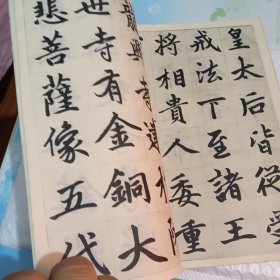 皇太后皆從受
戒法下至諸王
將相貴人委重
龍興寺建
世寺有金銅大
悲菩薩像五代